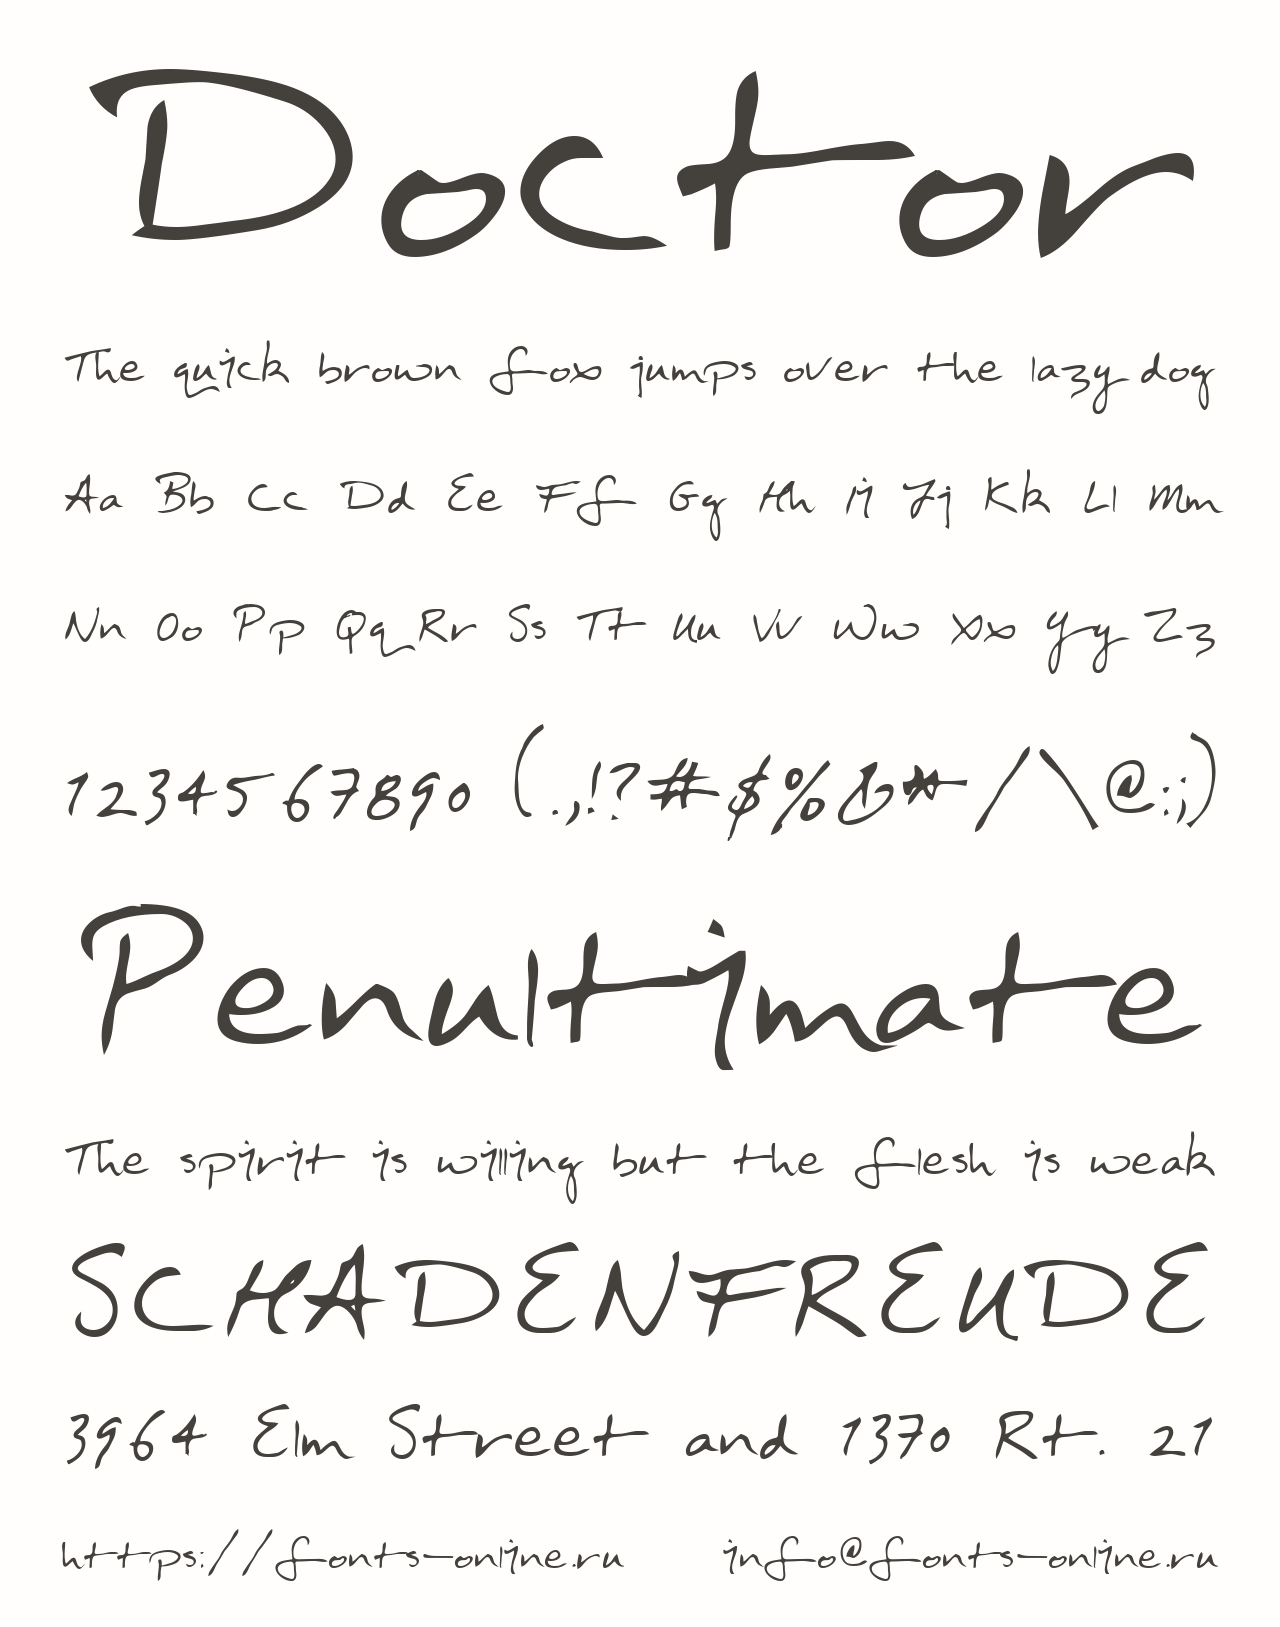 Doctor
The quick brown fox jumps over the lazy dog
Aa Bb Cc Dd Ee Ff Gg Hh Ii Jj Kk Ll Mm
Nn Oo Pp Qq Rr Ss Tt Uu Vv Ww Xx Yy Zz
1234567890 (.,!?#$%&*/\@:;)
Penultimate
The spirit is willing but the flesh is weak
SCHADENFREUDE
3964 Elm Street and 1370 Rt. 21
https://fonts-online.ru info@fonts-online.ru